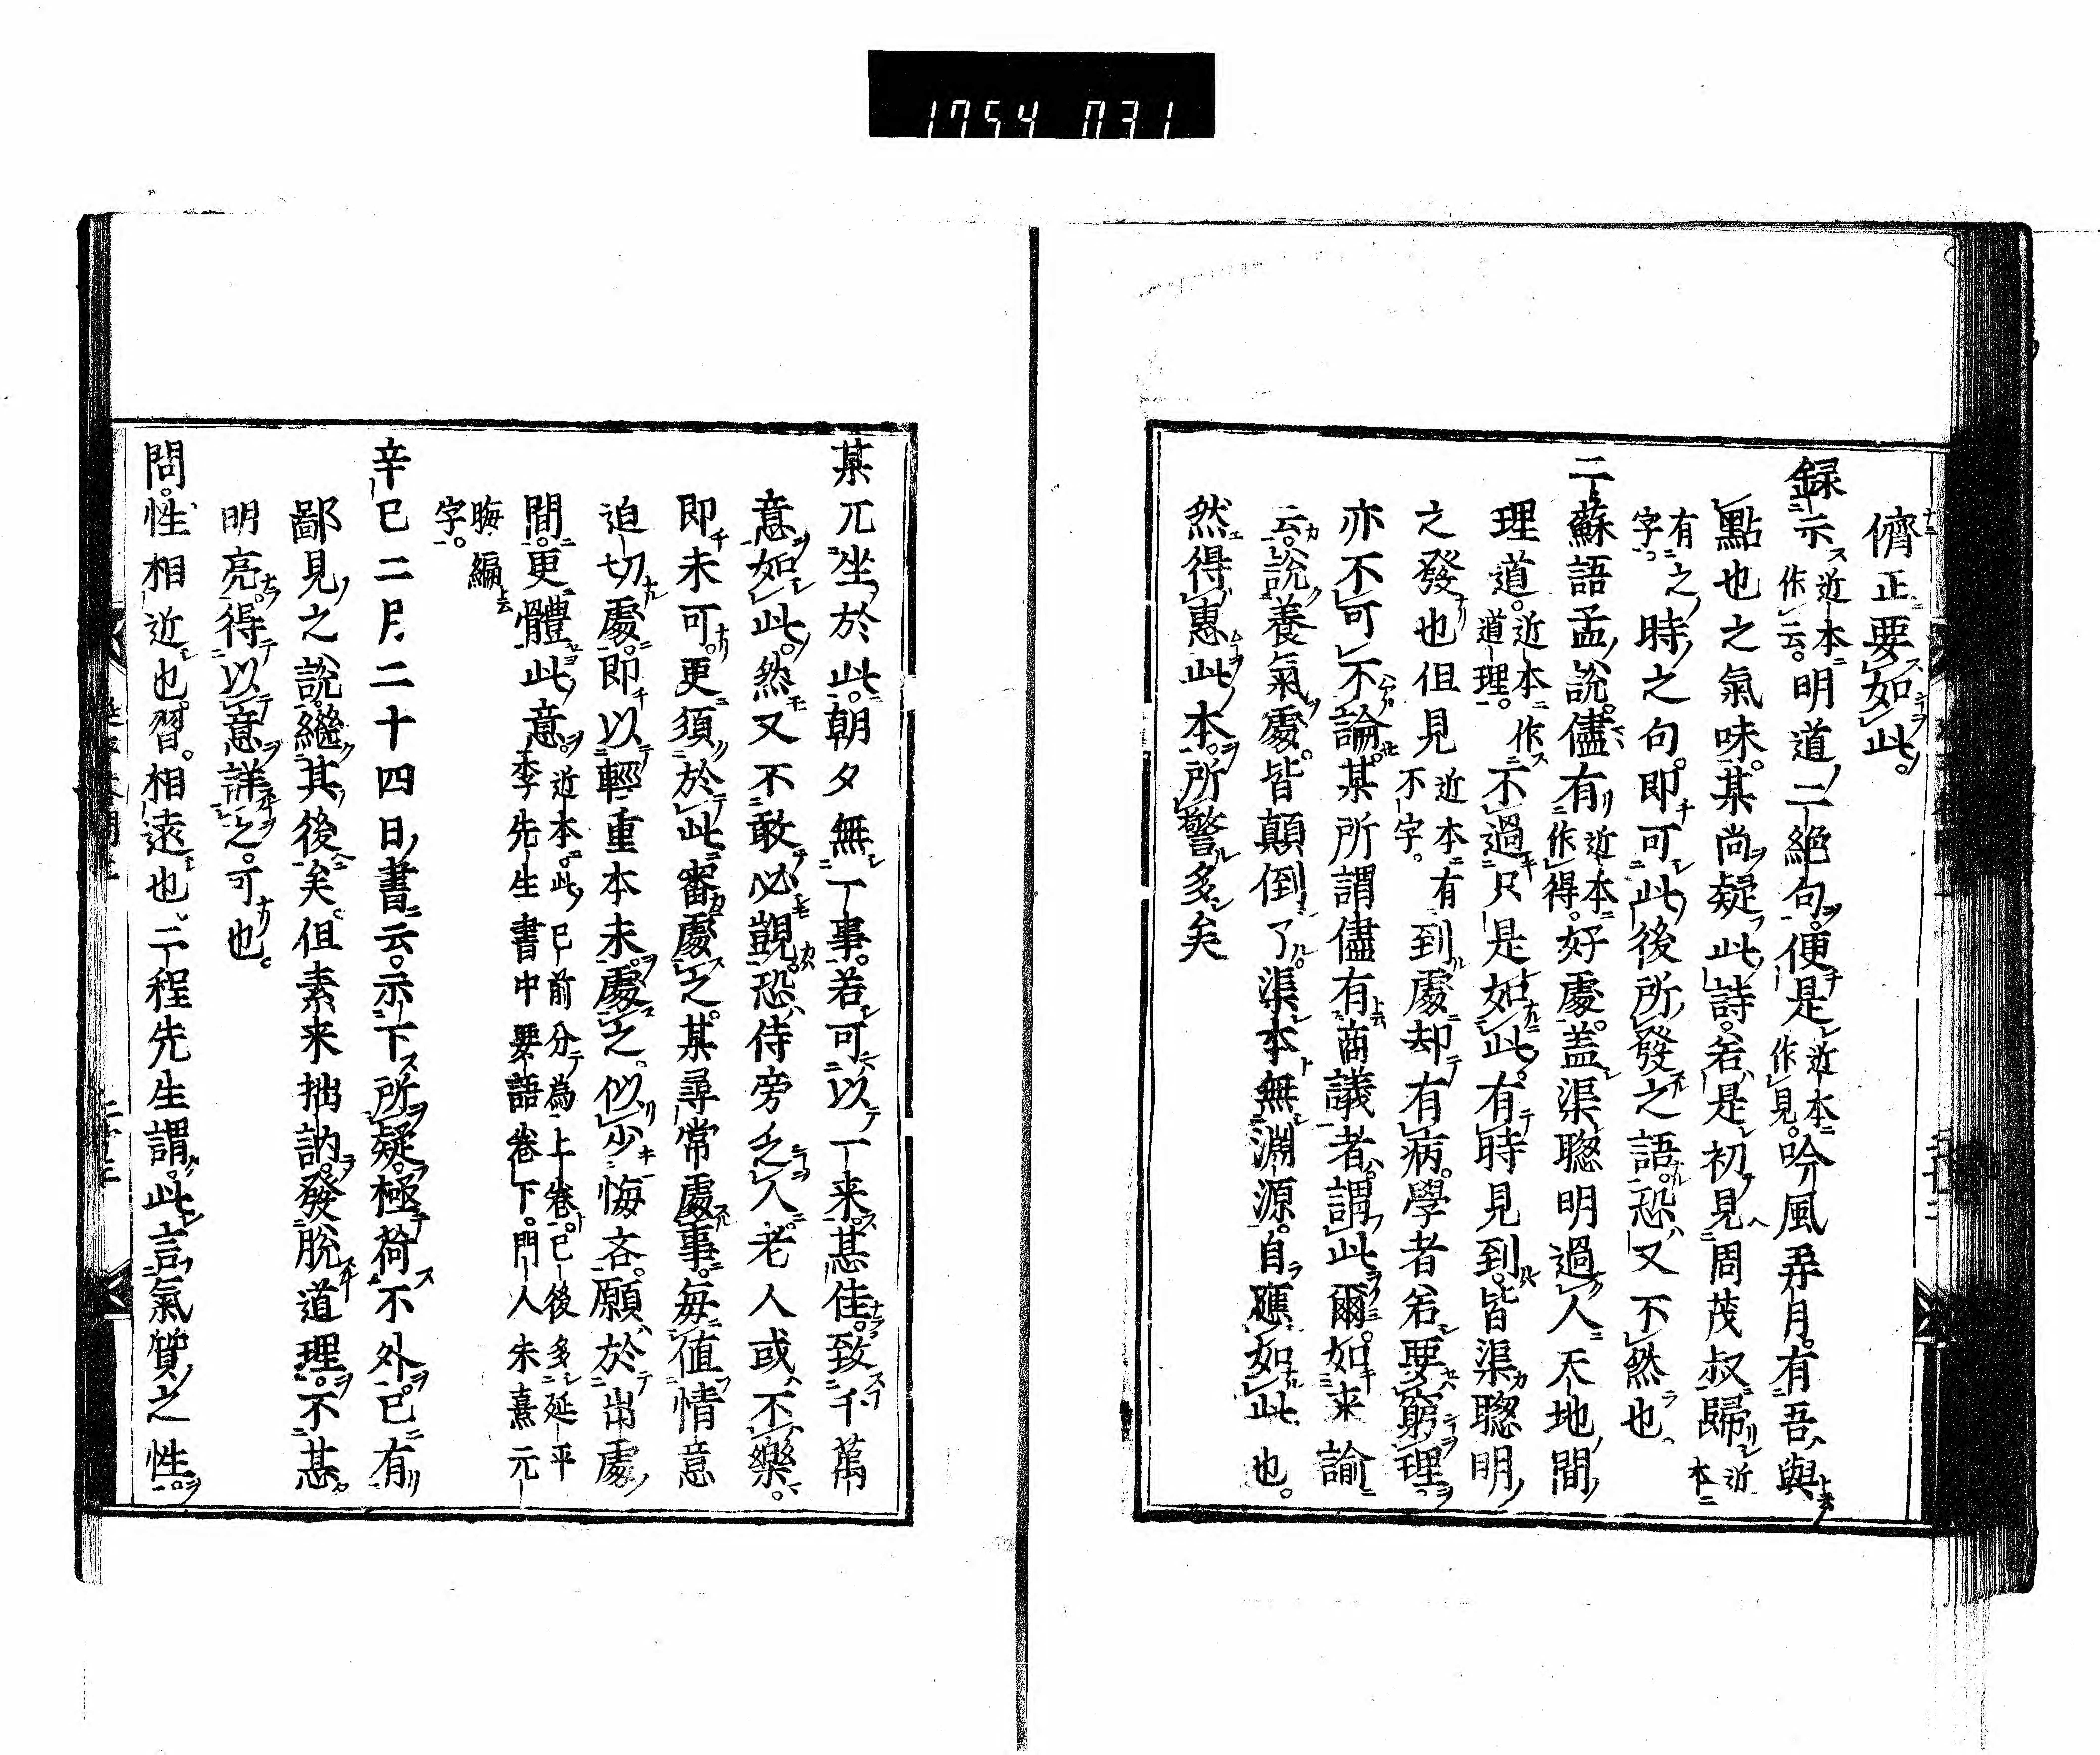 1754 031
儕正要如此。
録示近本作云。明道二絶句。便是近本作見。吟風弄月。有吾與
點也之氣味。某尚疑此詩。若是初見周茂叔歸近本
有之字。時之句。即可此後所發之語。恐又不然也
二蘇語孟説。儘有近本作得。好處。盖渠聰明過人天地間
理道。近本作道理。不過只是如此。有時見到。皆渠聰明
之發也但見近本有不字。到處却有病。學者若要窮理。
亦不可不論。某所謂儘有商議者。謂此爾。如来諭
云。説養氣處。皆顛倒了。渠本無淵源。自應如此也。
然得惠此本。所警多矣
某兀坐於此。朝夕無一事。若可以一来。甚佳。致千萬
意如此。然又不敢必覬。恐侍旁乏人。老人或不樂。
即未可。更須於此審處之。某尋常處事。每值情意
迫切處。即以輕重本末處之。似少悔吝。願於出處
間。更體此意。近本此已前分為上卷。已後多延平李先生書中要語卷下。門人朱熹元
晦編字。
辛巳二月二十四日書云。示下所疑。極荷不外。已有
鄙見之説。繼其後矣。但素来拙訥。發脱道理。不甚
明亮。得以意詳之。可也。
問。性相近也。習。相遠也二程先生謂。此言氣質之性。